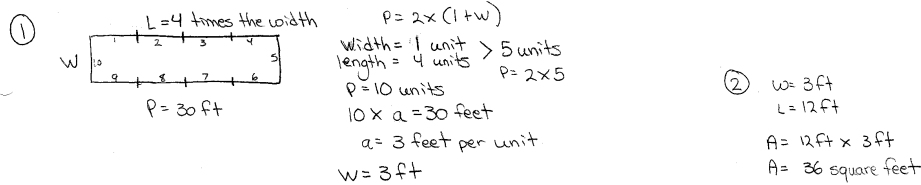 ①
L=4 times the width
W
1 2 3 4
10 5
9 8 7 6
P= 30 ft
P= 2x (l+w)
width= 1 unit > 5 units
length= 4 units P= 2x5
P=10 units
10 x a =30 feet
a= 3 feet per unit
W= 3ft
② w= 3ft
L= 12ft
A= 12ft x 3ft
A= 36 square feet